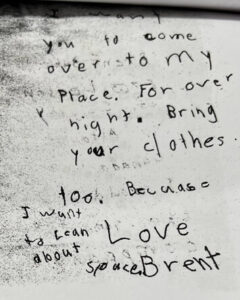 I want
you to come
over to my
Place. For over
night. Bring
your clothes.
too. Because
I want
to lean
about
space.
Love
Brent